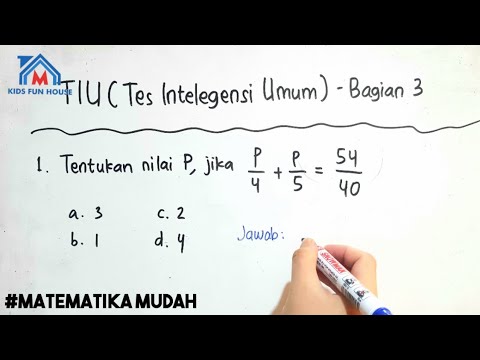 M
KIDS FUN HOUSE
TIU (Tes Intelegensi Umum) - Bagian 3
1. Tentukan nilai P, jika P/4 + P/5 = 54/40
a. 3 c. 2
b. 1 d. 4
Jawab:
#MATEMATIKA MUDAH